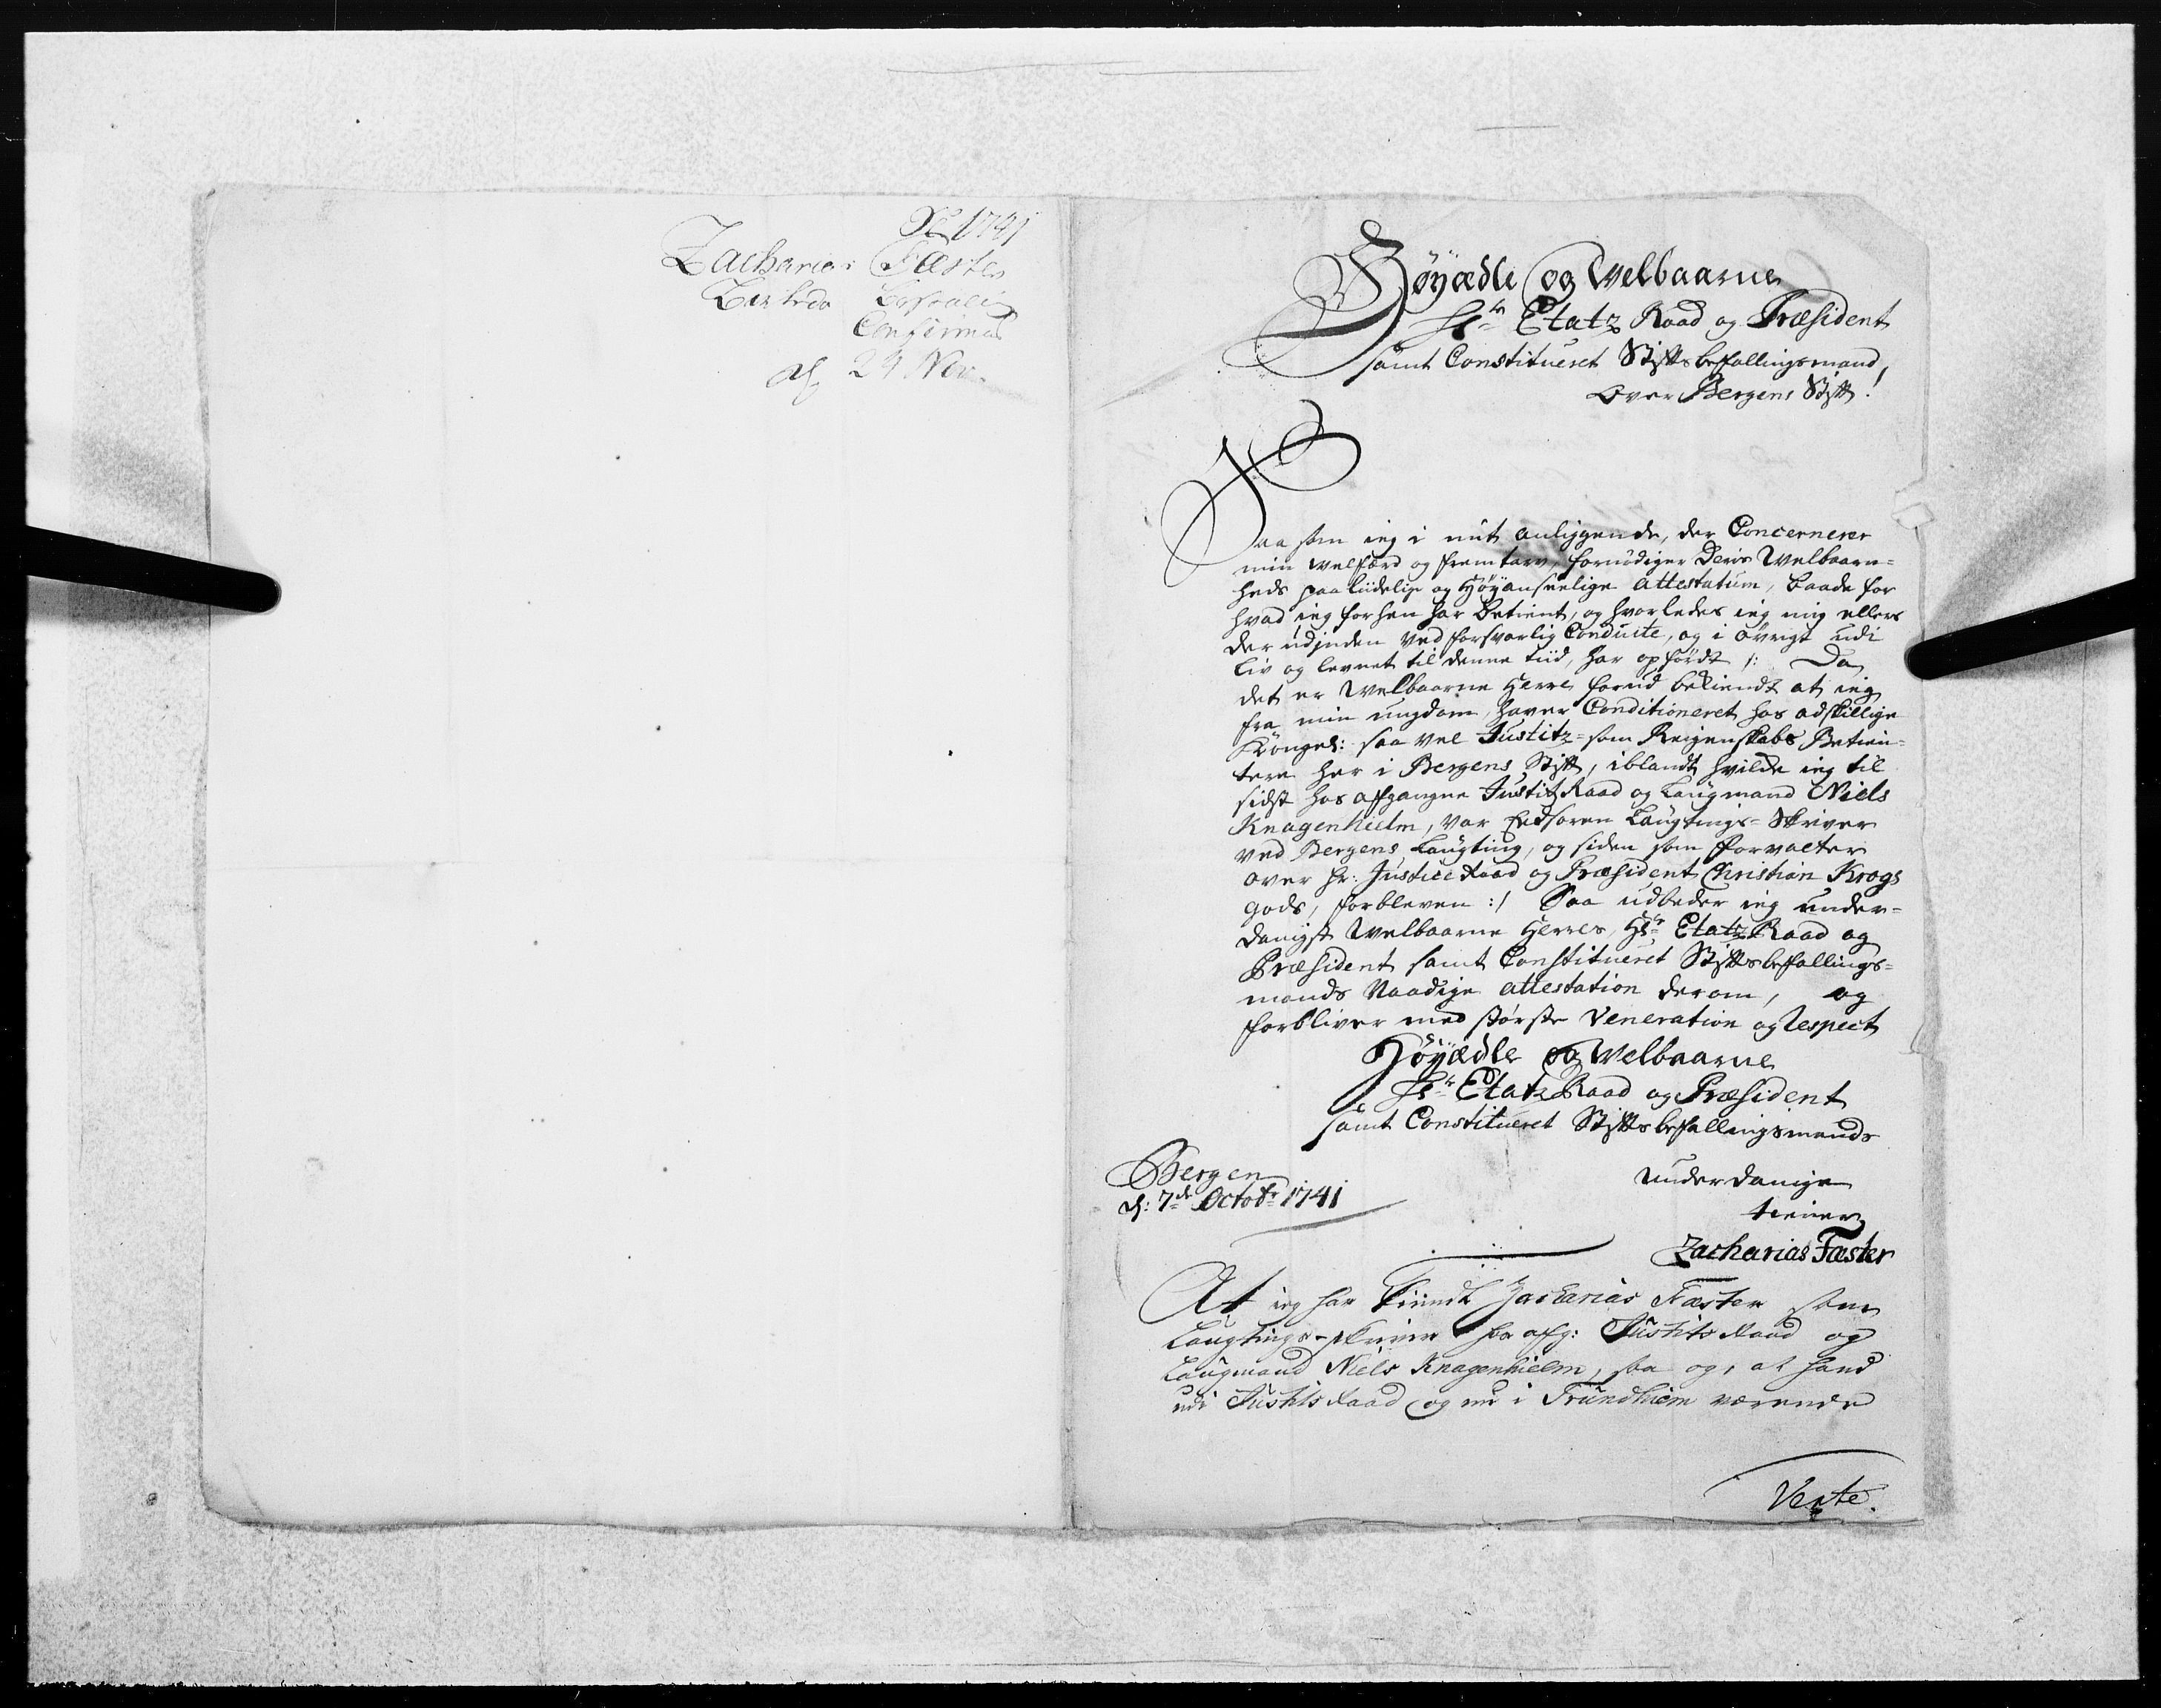 1741
Zacharias Fæster
Confirmas
24 Nov.
Høyædle og Welbaarne
Hr Etatz Raad og Præsident
samt Constitueret Stiftsbefallingsmand,
Over Bergens Stift!
Saa som ieg i mit anliggende, der Concernerer
min welfærd og fremtarv, fornødiger Deris Welbaarn=
heds paaliidelige og Høyanseelige attestatum, baade for
hvad ieg forhen har Betient, og hvorledes ieg mig ellers
der udjnden ved forsvarlig Conduite, og i øvrigt udi
liv og levnet til denne tiid, har opførdt /: Da
det er Welbaarne Herre forud bekiendt at ieg
fra min ungdom haver Conditioneret hos adskillige
Kongel: saa vel Justitz= som Regenskabs Betien=
tere her i Bergens Stift, iblandt hvilke ieg til
sidst hos afgangne Justitz Raad og Laugmand Niels
Knagenhielm, var Eedsoren Laugtings= Skriver
ved Bergens Laugting, og siden som Forvalter
over Hr: Justice Raad og Præsident Christian Krogs
gods, forbleven :/ Saa udbeder ieg under=
danigst Welbaarne Herres, Hr Etatz Raad og
Præsident samt Constitueret Stiftsbefallings=
mands Naadige attestation derom, og
forbliver med største Veneration og respect
Høyædle og Welbaarne
Hr Etatz Raad og Præsident
samt Constitueret Stiftsbefallingsmands
Bergen
d: 7de Octobr 1741
underdanige
tiener
Zacharias Fæster
At ieg har kiendt Zacharias Fæster som
Laugtings-skriver hos afg: Justits Raad og
Laugmand Niels Knagenhielm, saa og, at hand
udi Justits Raad og nu i Trundhiem værende
Verte.